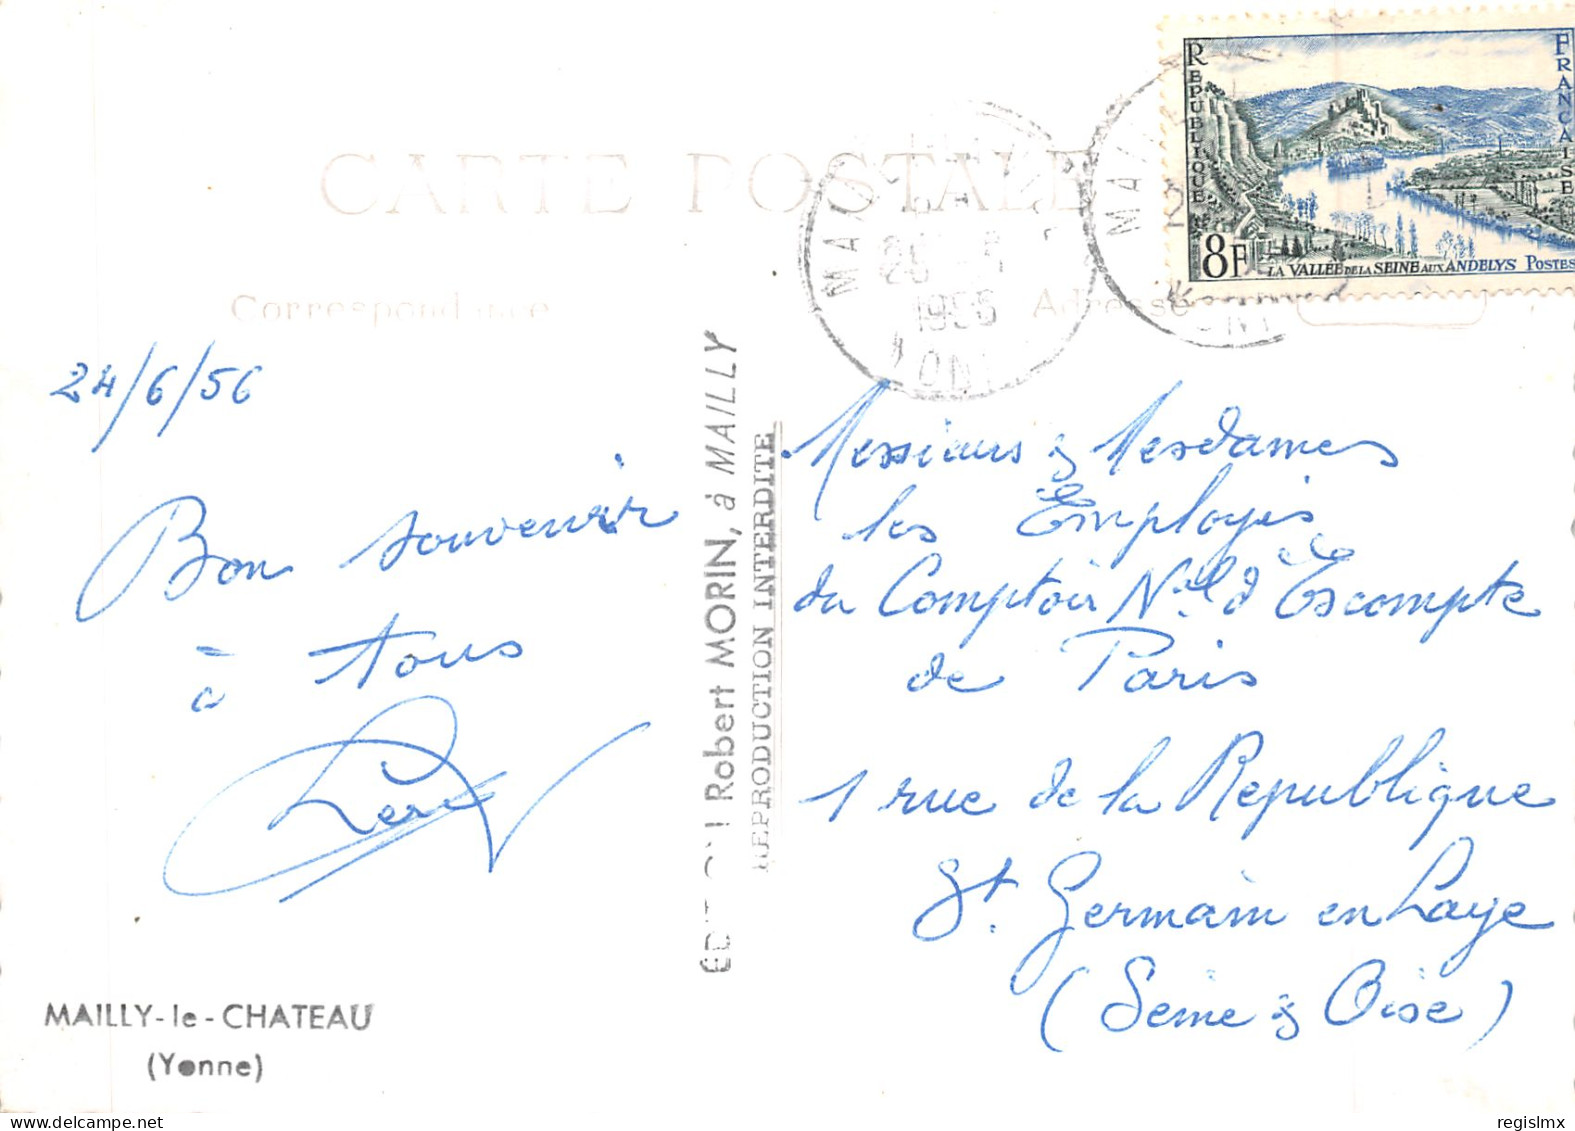 CARTE POSTALE
Correspondance
Adresse
REPUBLIQUE FRANCAISE
8F
LA VALLÉE DE LA SEINE AUX ANDELYS POSTES
1956
24/6/56
Bon souvenir
à tous
Robert MORIN, à MAILLY
REPRODUCTION INTERDITE
Messieurs & Mesdames
les Employés
du Comptoir Nal d'Escompte
de Paris
1 rue de la République
St. Germain en Laye
(Seine & Oise)
MAILLY-le-CHATEAU
(Yonne)
regislmx